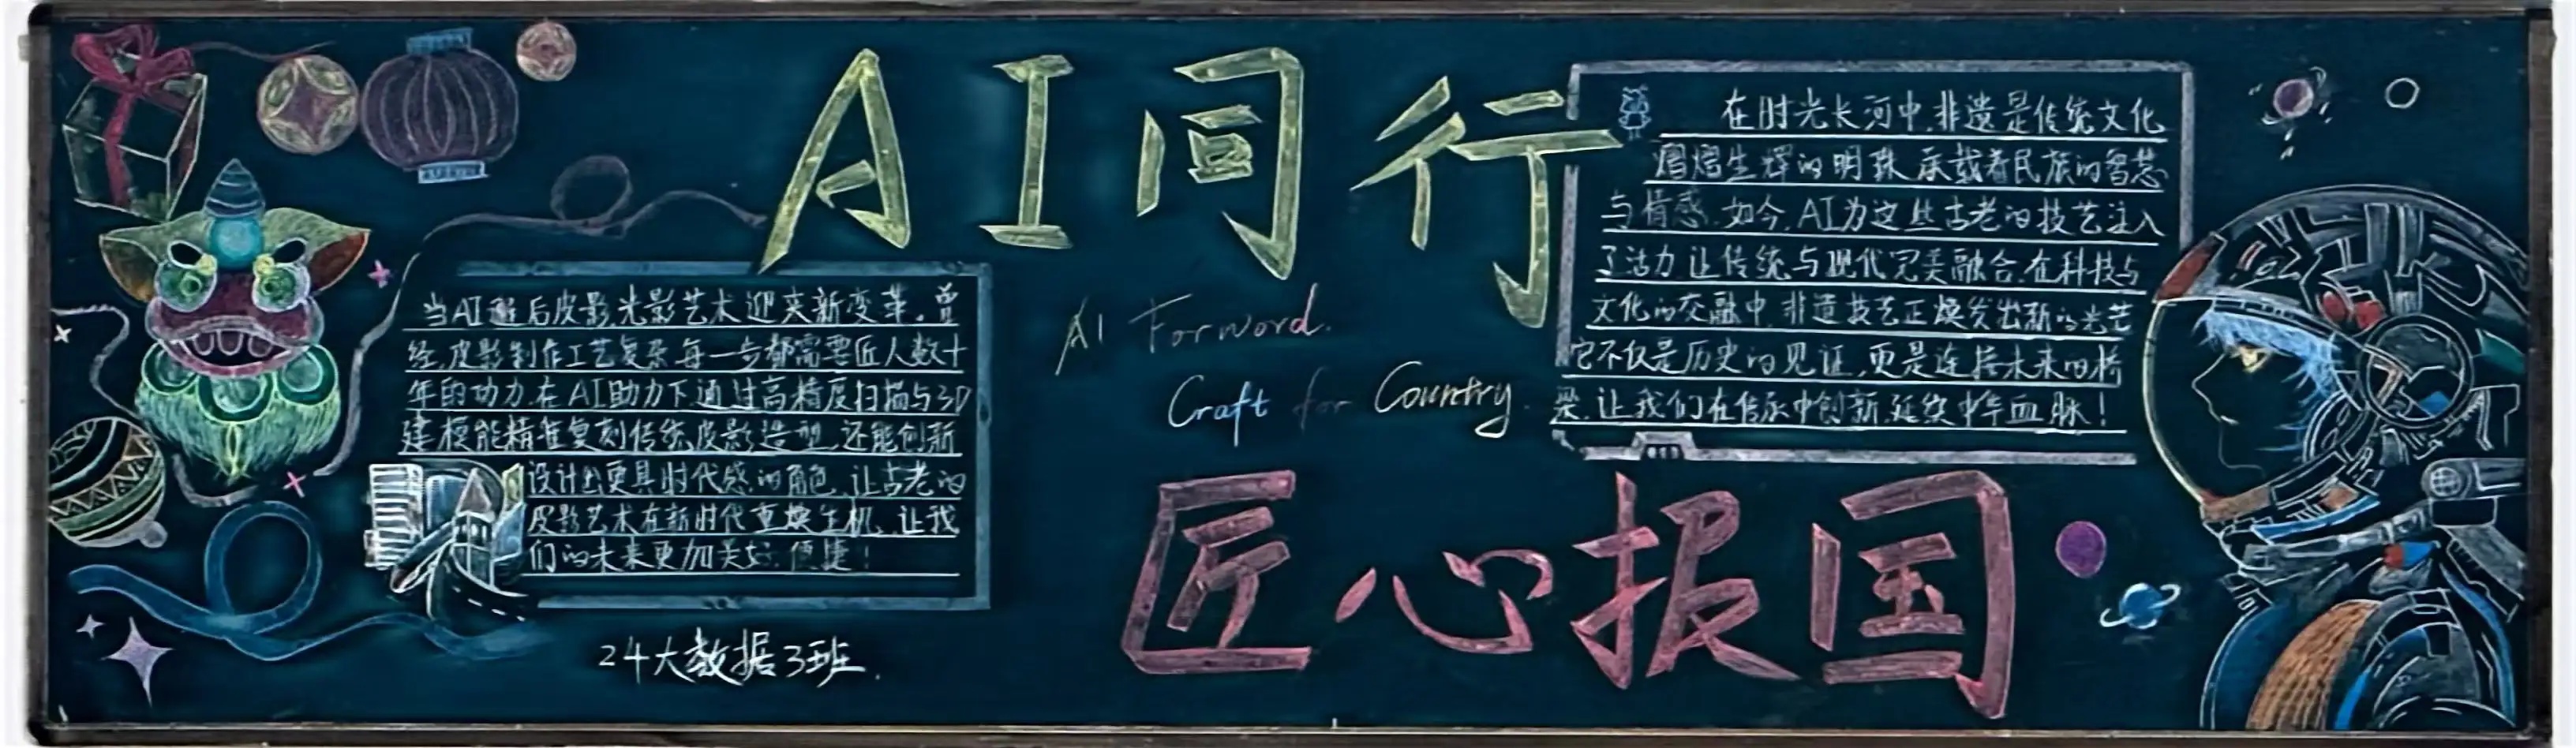 AI同行
AI Forword.
Craft for Country.
匠心报国
当AI邂后皮影,光影艺术迎来新变革。曾
经,皮影制作工艺复杂每一步都需要匠人数十
年的功力.在AI助力下,通过高精度扫描与3D
建模能精准复刻传统皮影造型,还能创新
设计出更具时代感的角色,让古老的
皮影艺术在新时代重焕生机,让我
们的未来更加美好,便捷!
24大数据3班.
在时光长河中,非遗是传统文化
熠熠生辉的明珠,承载着民族的智慧
与情感.如今,AI为这些古老的技艺注入
了活力,让传统与现代完美融合.在科技与
文化的交融中,非遗技艺正焕发出新的光芒
它不仅是历史的见证,更是连接未来的桥
梁,让我们在传承中创新,延续中华血脉!